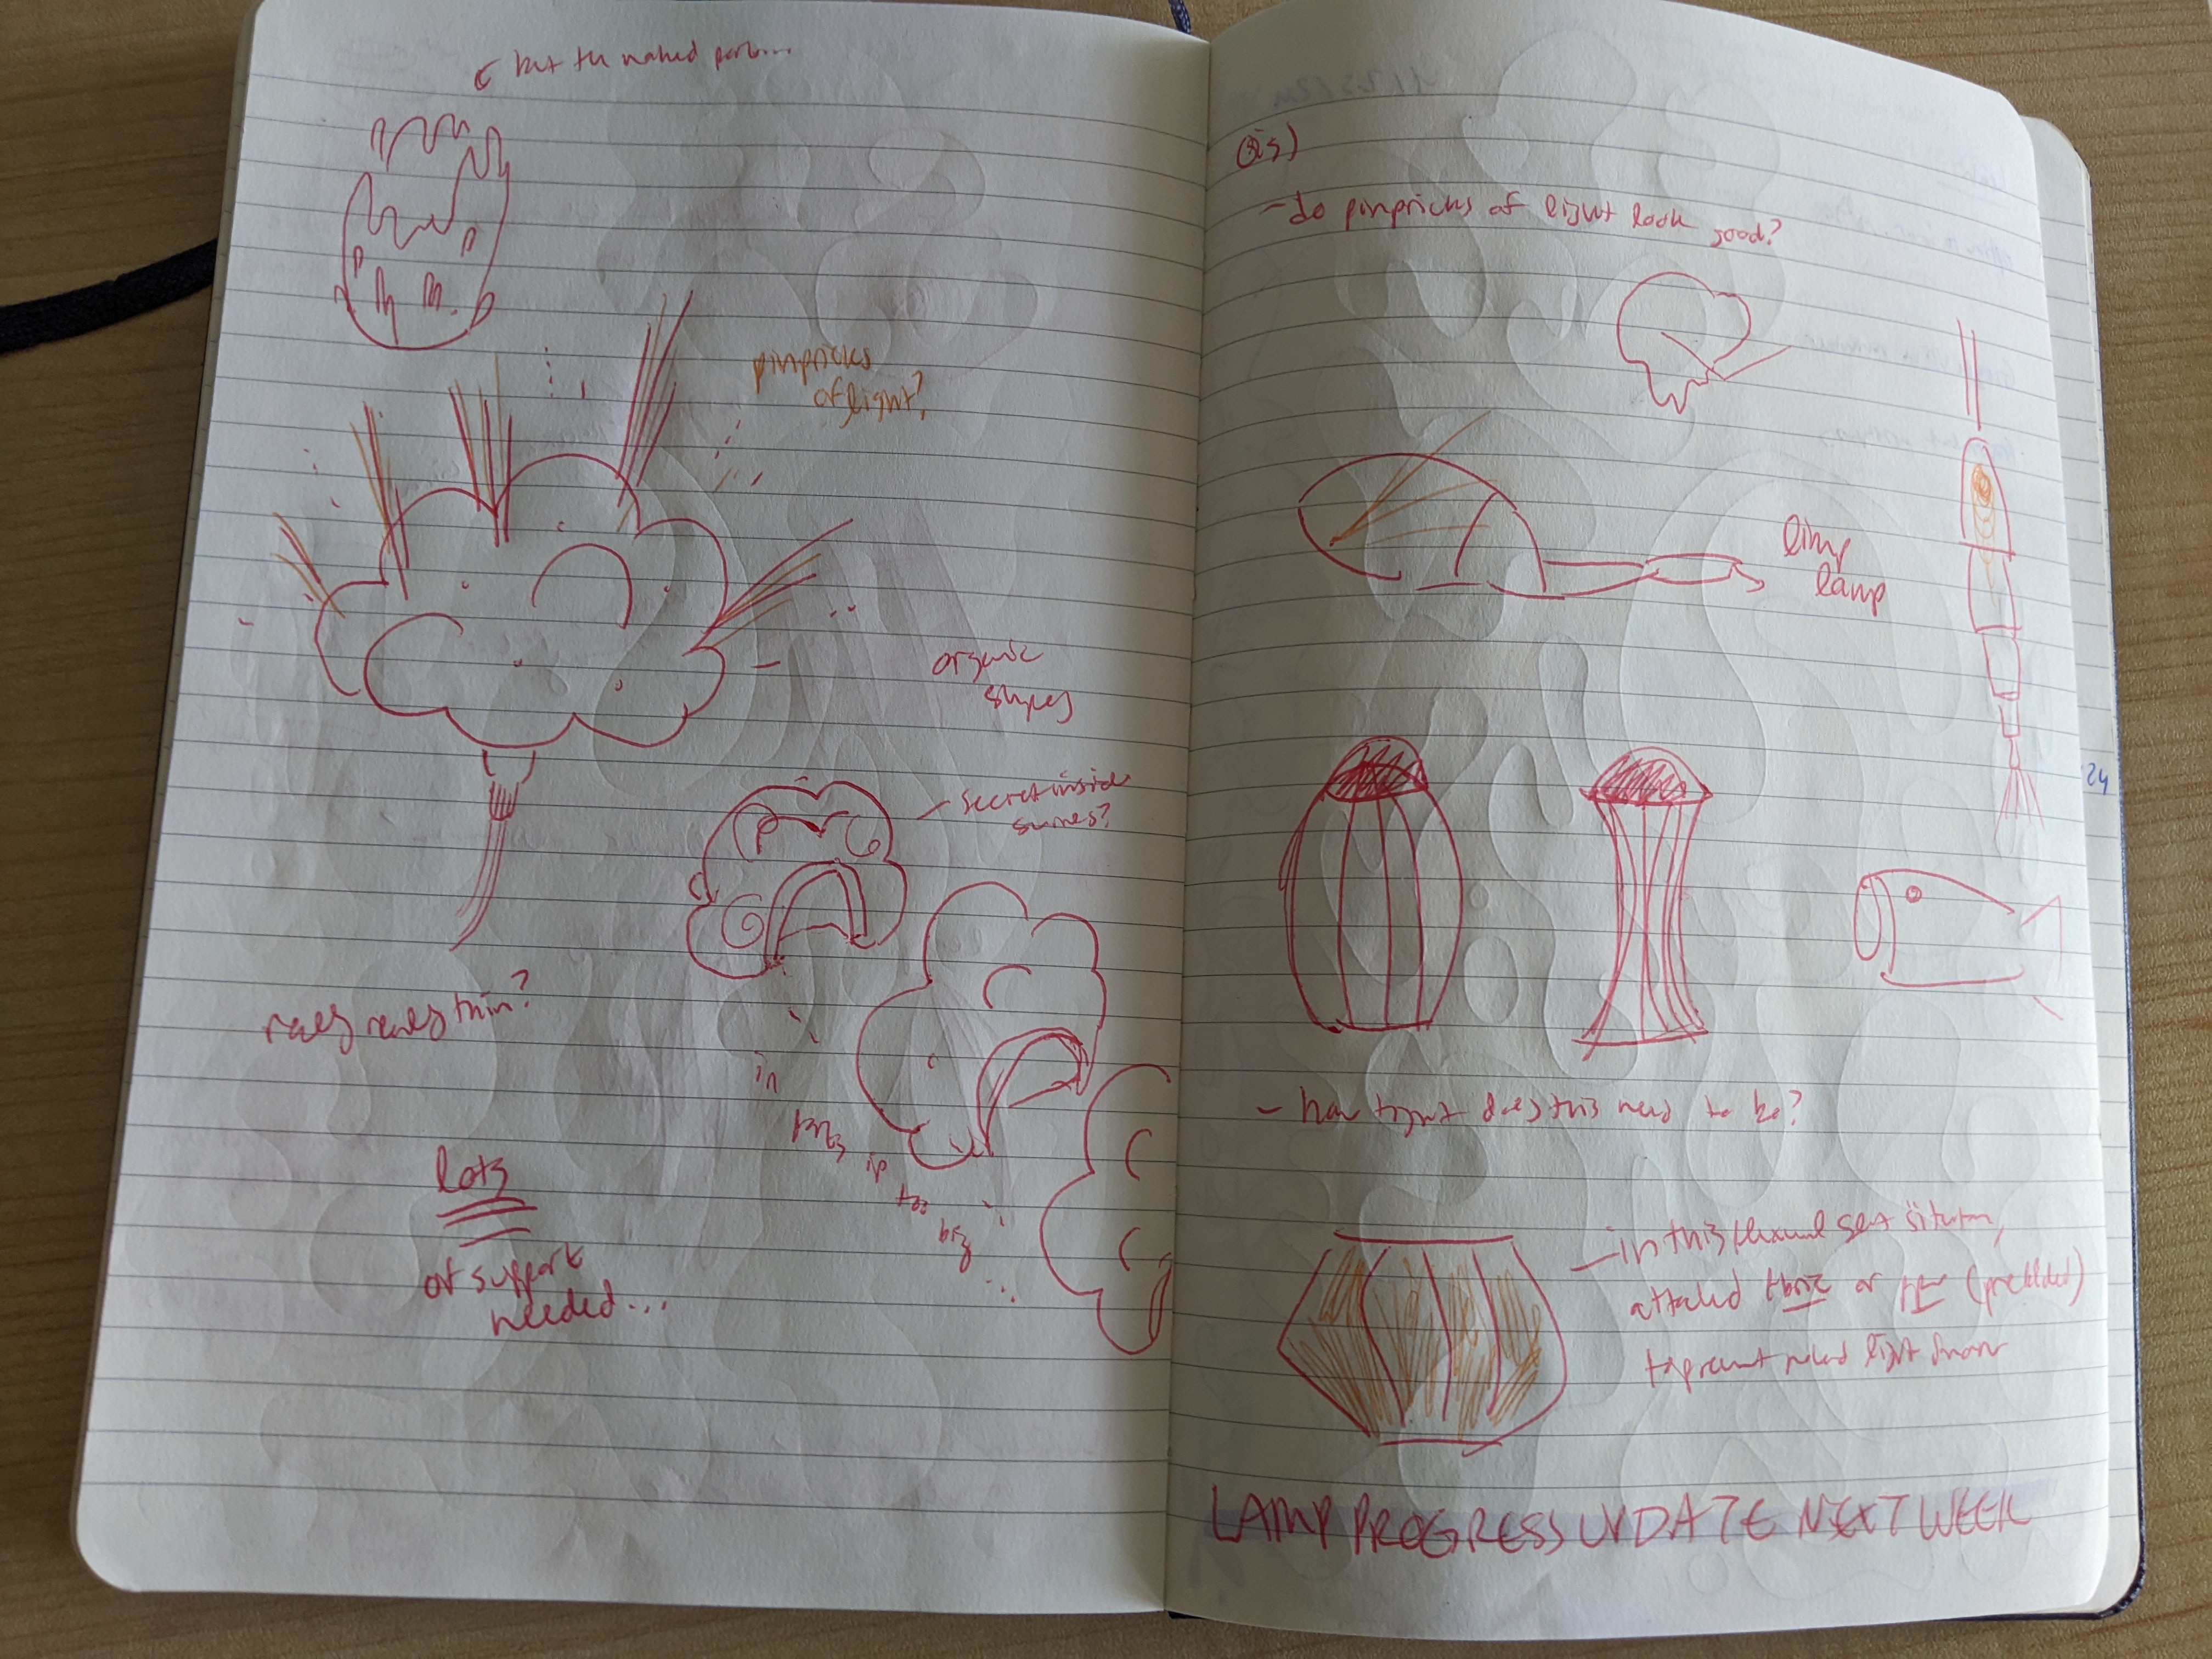 but the naked parts...
pinpricks
of light?
organic
shapes
secret inside
scenes?
really really thin?
in
parts
is
too
big
lots
of support
needed...
Q's)
- do pinpricks of light look good?
limp
lamp
24
- how tight does this need to be?
- in this
attached fabric or
to prevent naked light from
LAMP PROGRESS UPDATE NEXT WEEK